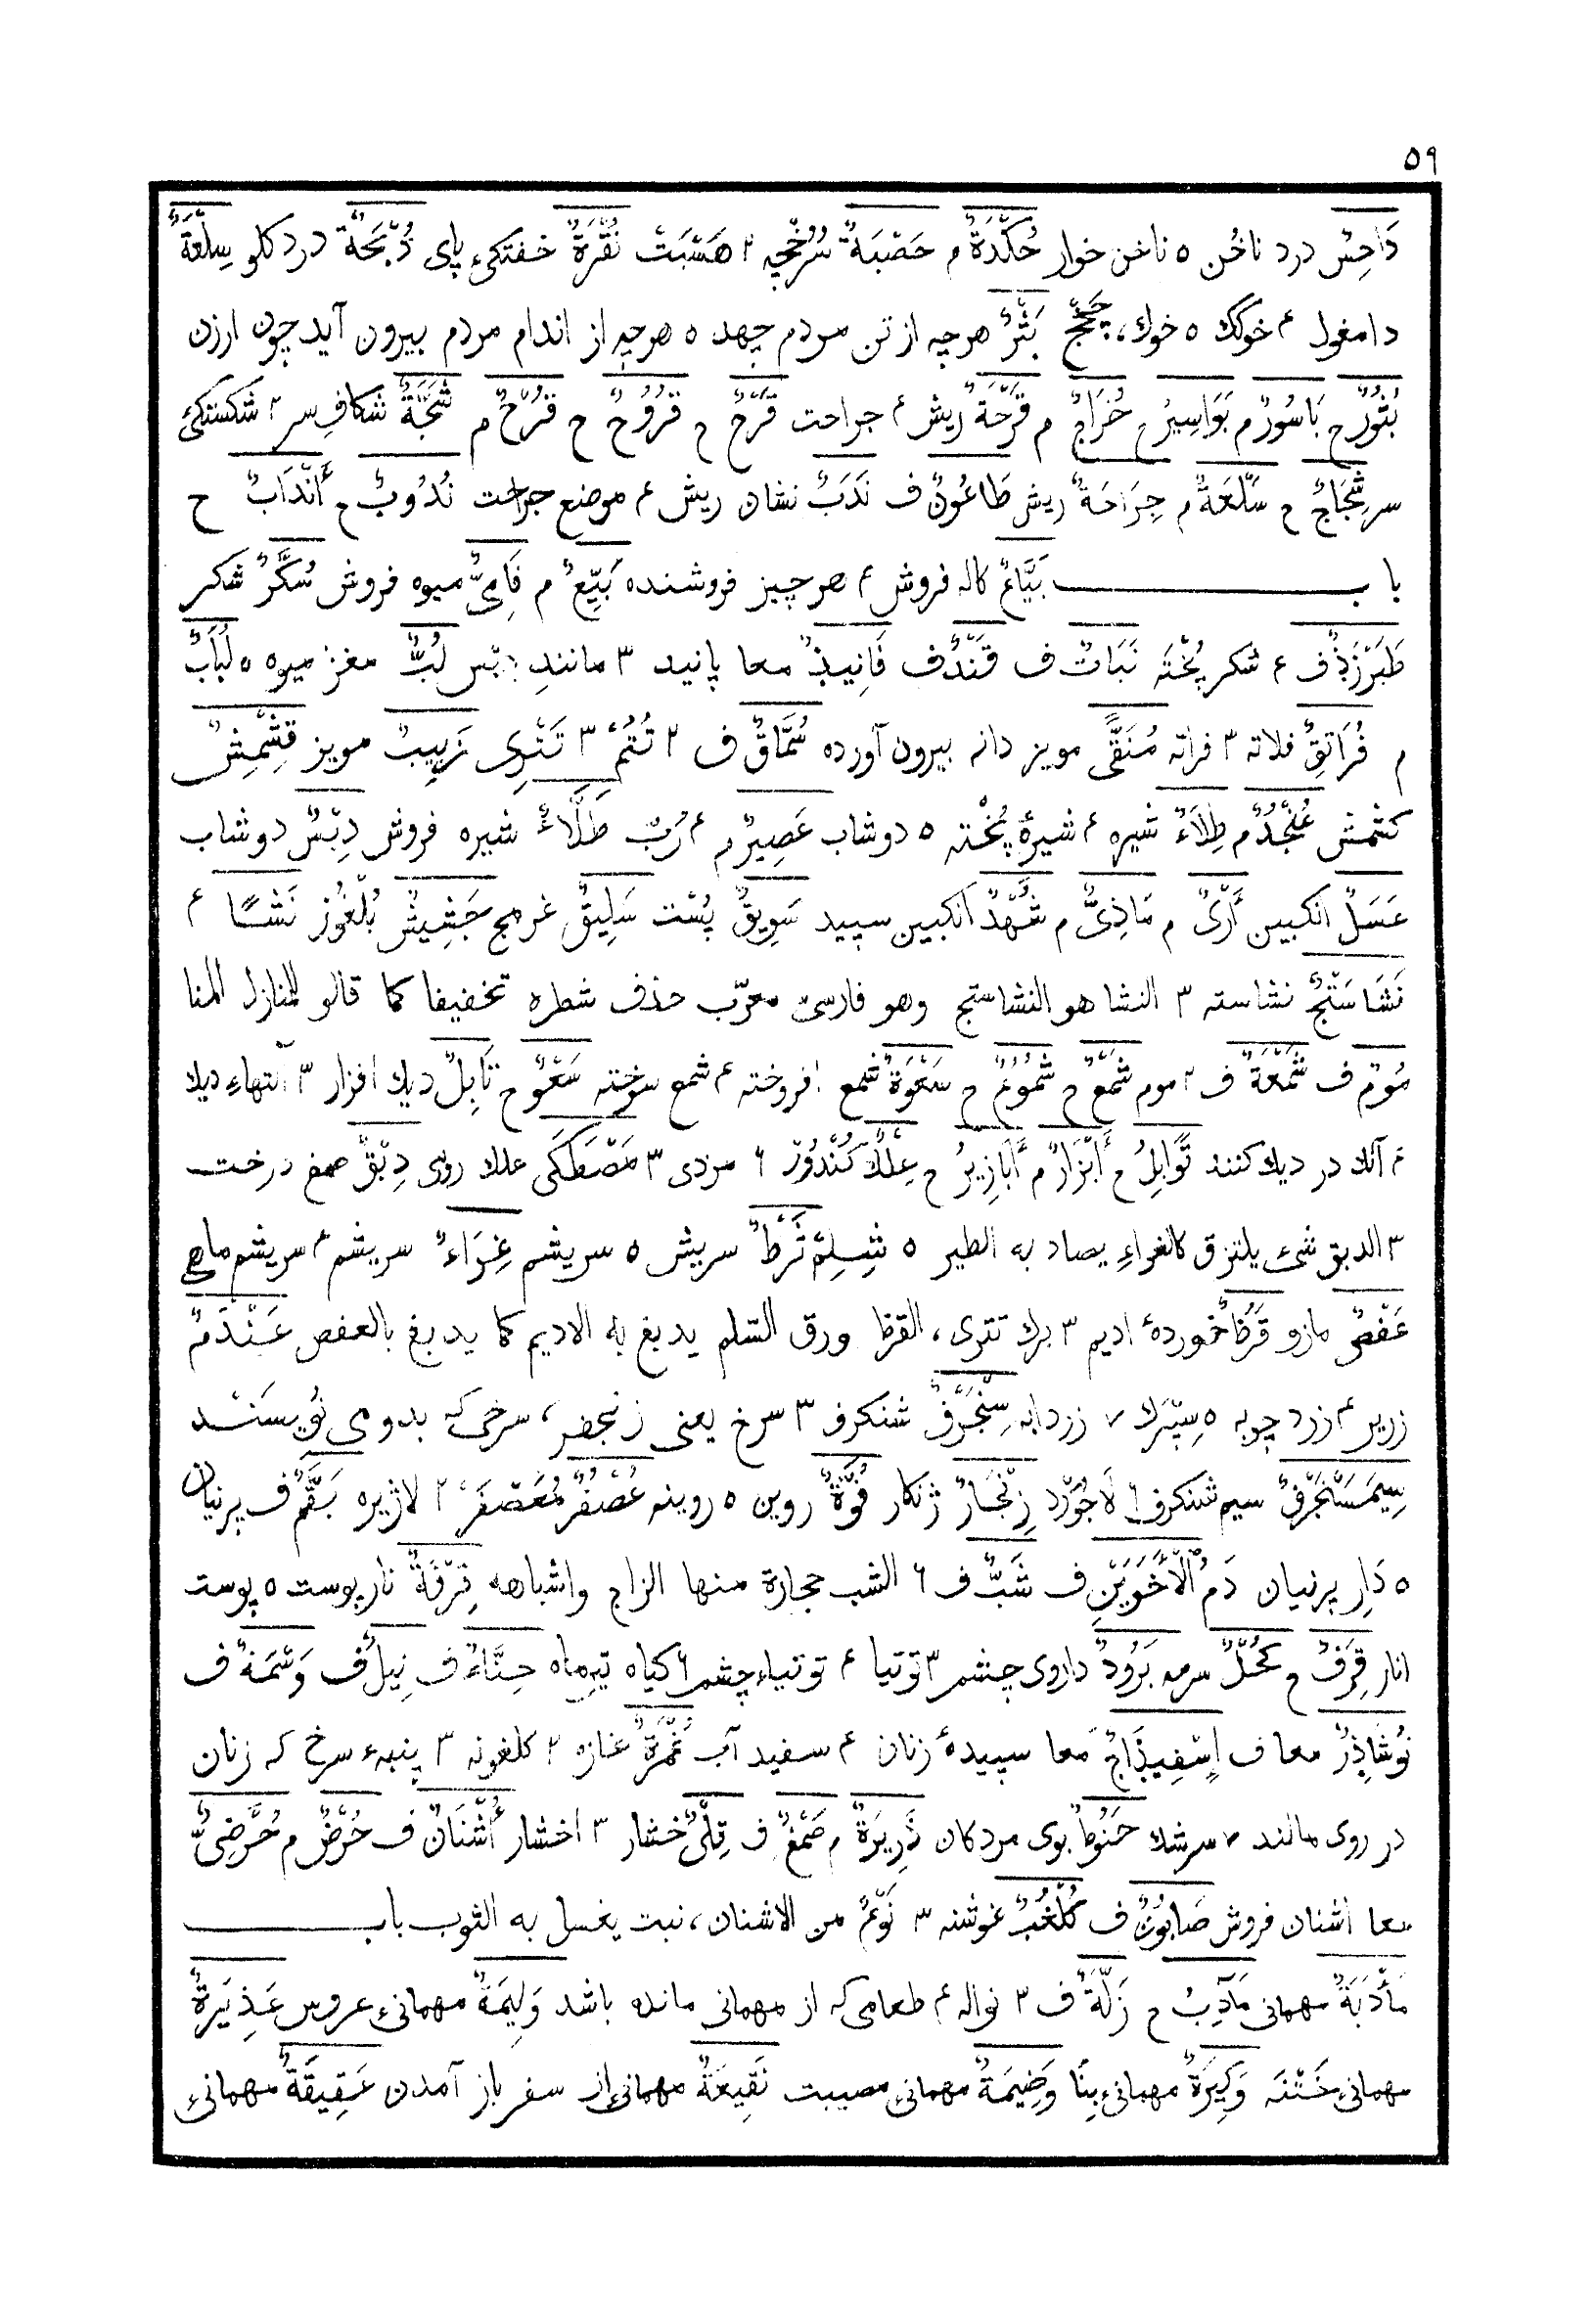 ٥٩
دَاحِسٌ درد ناخُن ٥ ناخن خوار حُكَّدَةٌ م حَصْبَةٌ سُرْخْچه ٢ هَسْبَتْ نُقْرَةٌ خفتكیِ پای ذُبَحَةٌ درد كلو سِلْعَةٌ
دامغول ٤ خوكك ٥ خوك، چَخْج بَثْرٌ هرچه از تن مردم جهد ٥ هرچه از اندام مردم بیرون آید چون ارزن
بُثُورٌ ح بَاسُورٌ م بَوَاسِیرُ ح خُرَاجٌ م قَرْحَةٌ ریش ٤ جراحت قَرْحٌ ح قُرُوحٌ ح قُرْحٌ م شَجَّةٌ شكافِ سر ٢ شكستكیِ
سر شِجَاجٌ ح سَلْعَةٌ م جِرَاحَةٌ ریش طَاعُونٌ ف نَدَبٌ نشان ریش ٤ موضع جراحت نُدُوبٌ ح أَنْدَابٌ ح
باب بَیَّاعٌ كاله فروش ٤ هر چیز فروشنده بَیِّعٌ م فَامِیٌّ میوه فروش سُكَّرٌ شكر
طَبَرْزَذٌ ف ٤ شكر پُخْتَه نَبَاتٌ ف قَنْدٌ ف فَانِیذٌ معا پانید ٣ مانندِ لُبٌّ مغز میوه ٥ لُبَابٌ
م فُرَاتِقٌ فلاته ٣ فراته مُنَقًّی مویز دانه بیرون آورده سُمَّاقٌ ف ٢ تُتُم ٣ تَتْرِی زَبِیبٌ مویز قِشْمِشٌ
كشمش عُنْجُدٌ م طِلَاءٌ شیره ٤ شیرهٔ پُخْته ٥ دوشاب عَصِیرٌ م ٤ رُبّ طَلَّاءٌ شیره فروش دِبْسٌ دوشاب
عَسَلٌ انكبین أَرْیٌ م مَاذِیٌّ م شَُهْدٌ انكبین سپید سَوِیقٌ پِسْت سَلِیقٌ غرمج جَشِیشٌ بُلْغُوْز نَشًا ٤
نَشَاسْتَجٌ نشاسته ٣ النشا هو النشاستج وهو فارسیّ معرّب حذف شطره تخفیفا كما قالو للمنازل المنا
مُوْمٌ ف شَمْعَةٌ ف ٢ موم شَمْعٌ ح شُمُوعٌ ح سَعْوَةٌ شمع افروخته ٤ شمع سوخته سَعْوٌ ح تَابِلٌ دیك افزار ٣ آلتهاءِ دیك
٤ آنك در دیك كنند تَوَابِلُ ح أَبْزَارٌ م أَبَازِیرُ ح عِلْكٌ كُنْدُوْر ٦ مزدی ٣ مَصْطَكَی علك رومی دِبْقٌ صمغ درخت
٣ الدبق شیء یلتزق كالغراءِ یصاد به الطیر ٥ شِلِم ثَرْطٌ سریش ٥ سریشم غِرَاءٌ سریشم ٤ سریشم ماهی
عَفْصٌ مازو قَرَظٌ خوردهٔ ادیم ٣ برك تتری، القرظ ورق السّلم یدبغ به الادیم كما یدبغ بالعفص عَنْدَمٌ
زریر ٤ زرد چوبه ٥ سِپْرَك ٧ زردابه سِنْجَرْفٌ شنكرف ٣ سرخ یعنی زنجفر، سرخی كه بدو می نُوِیسَنْد
سِیمَسَنْجَرْفٌ سیم شنكرف ٦ لَاجُوَرْد زِنْجَارٌ ژنكار فُوَّةٌ روین ٥ روینه عُصْفُرٌ مُعَصْفَرْ ٢ لاژیره بَقَّمٌ ف پرنیان
٥ دَارِ پرنیان دَمُ الْأَخَوَیْنِ ف شَبٌّ ف ٦ الشب حجارة منها الزاج واشباهه قِرْفَةٌ نار پوست ٥ پوست
انار قِرَفٌ ح كُحْلٌ سرمه بَرُودٌ داروی چشم ٣ توتیا ٤ توتیاءِ چشم ٦ كیاه تیرماه حِنَّاءٌ ف نِیلٌ ف وَسْمَةٌ ف
نُوشَاذِرٌ معا ف إِسْفِیذَاجٌ معا سپیدهٔ زنان ٤ سفید آب غُمْرَةٌ غازه ٢ كلغونه ٣ پنبهء سرخ كه زنان
در روی مالند ٧ سرشك حَنُوطٌ بوی مردكان ذَرِیرَةٌ م صَمْغٌ ف قِلْیٌ خشار ٣ اخشار أُشْنَانٌ ف حُرْضٌ م حُرَّضِیٌّ
معا اشنان فروش صَابُونٌ ف كُلْغُبٌ غوشنه ٣ نَوْعٌ من الاشنان، نبت یغسل به الثوب باب
مَأْدُبَةٌ مهمانی مَآدِبُ ح زَلَّةٌ ف ٣ نواله ٤ طعامی كه از مهمانی مانده باشد وَلِیمَةٌ مهمانیءِ عروس عَذِیرَةٌ
مهمانیءِ خَتْنَه وَكِیرَةٌ مهمانیءِ بِنَا وَضِیمَةٌ مهمانیءِ مصیبت نَقِیعَةٌ مهمانیءِ از سفر باز آمدن عَقِیقَةٌ مهمانیءِ